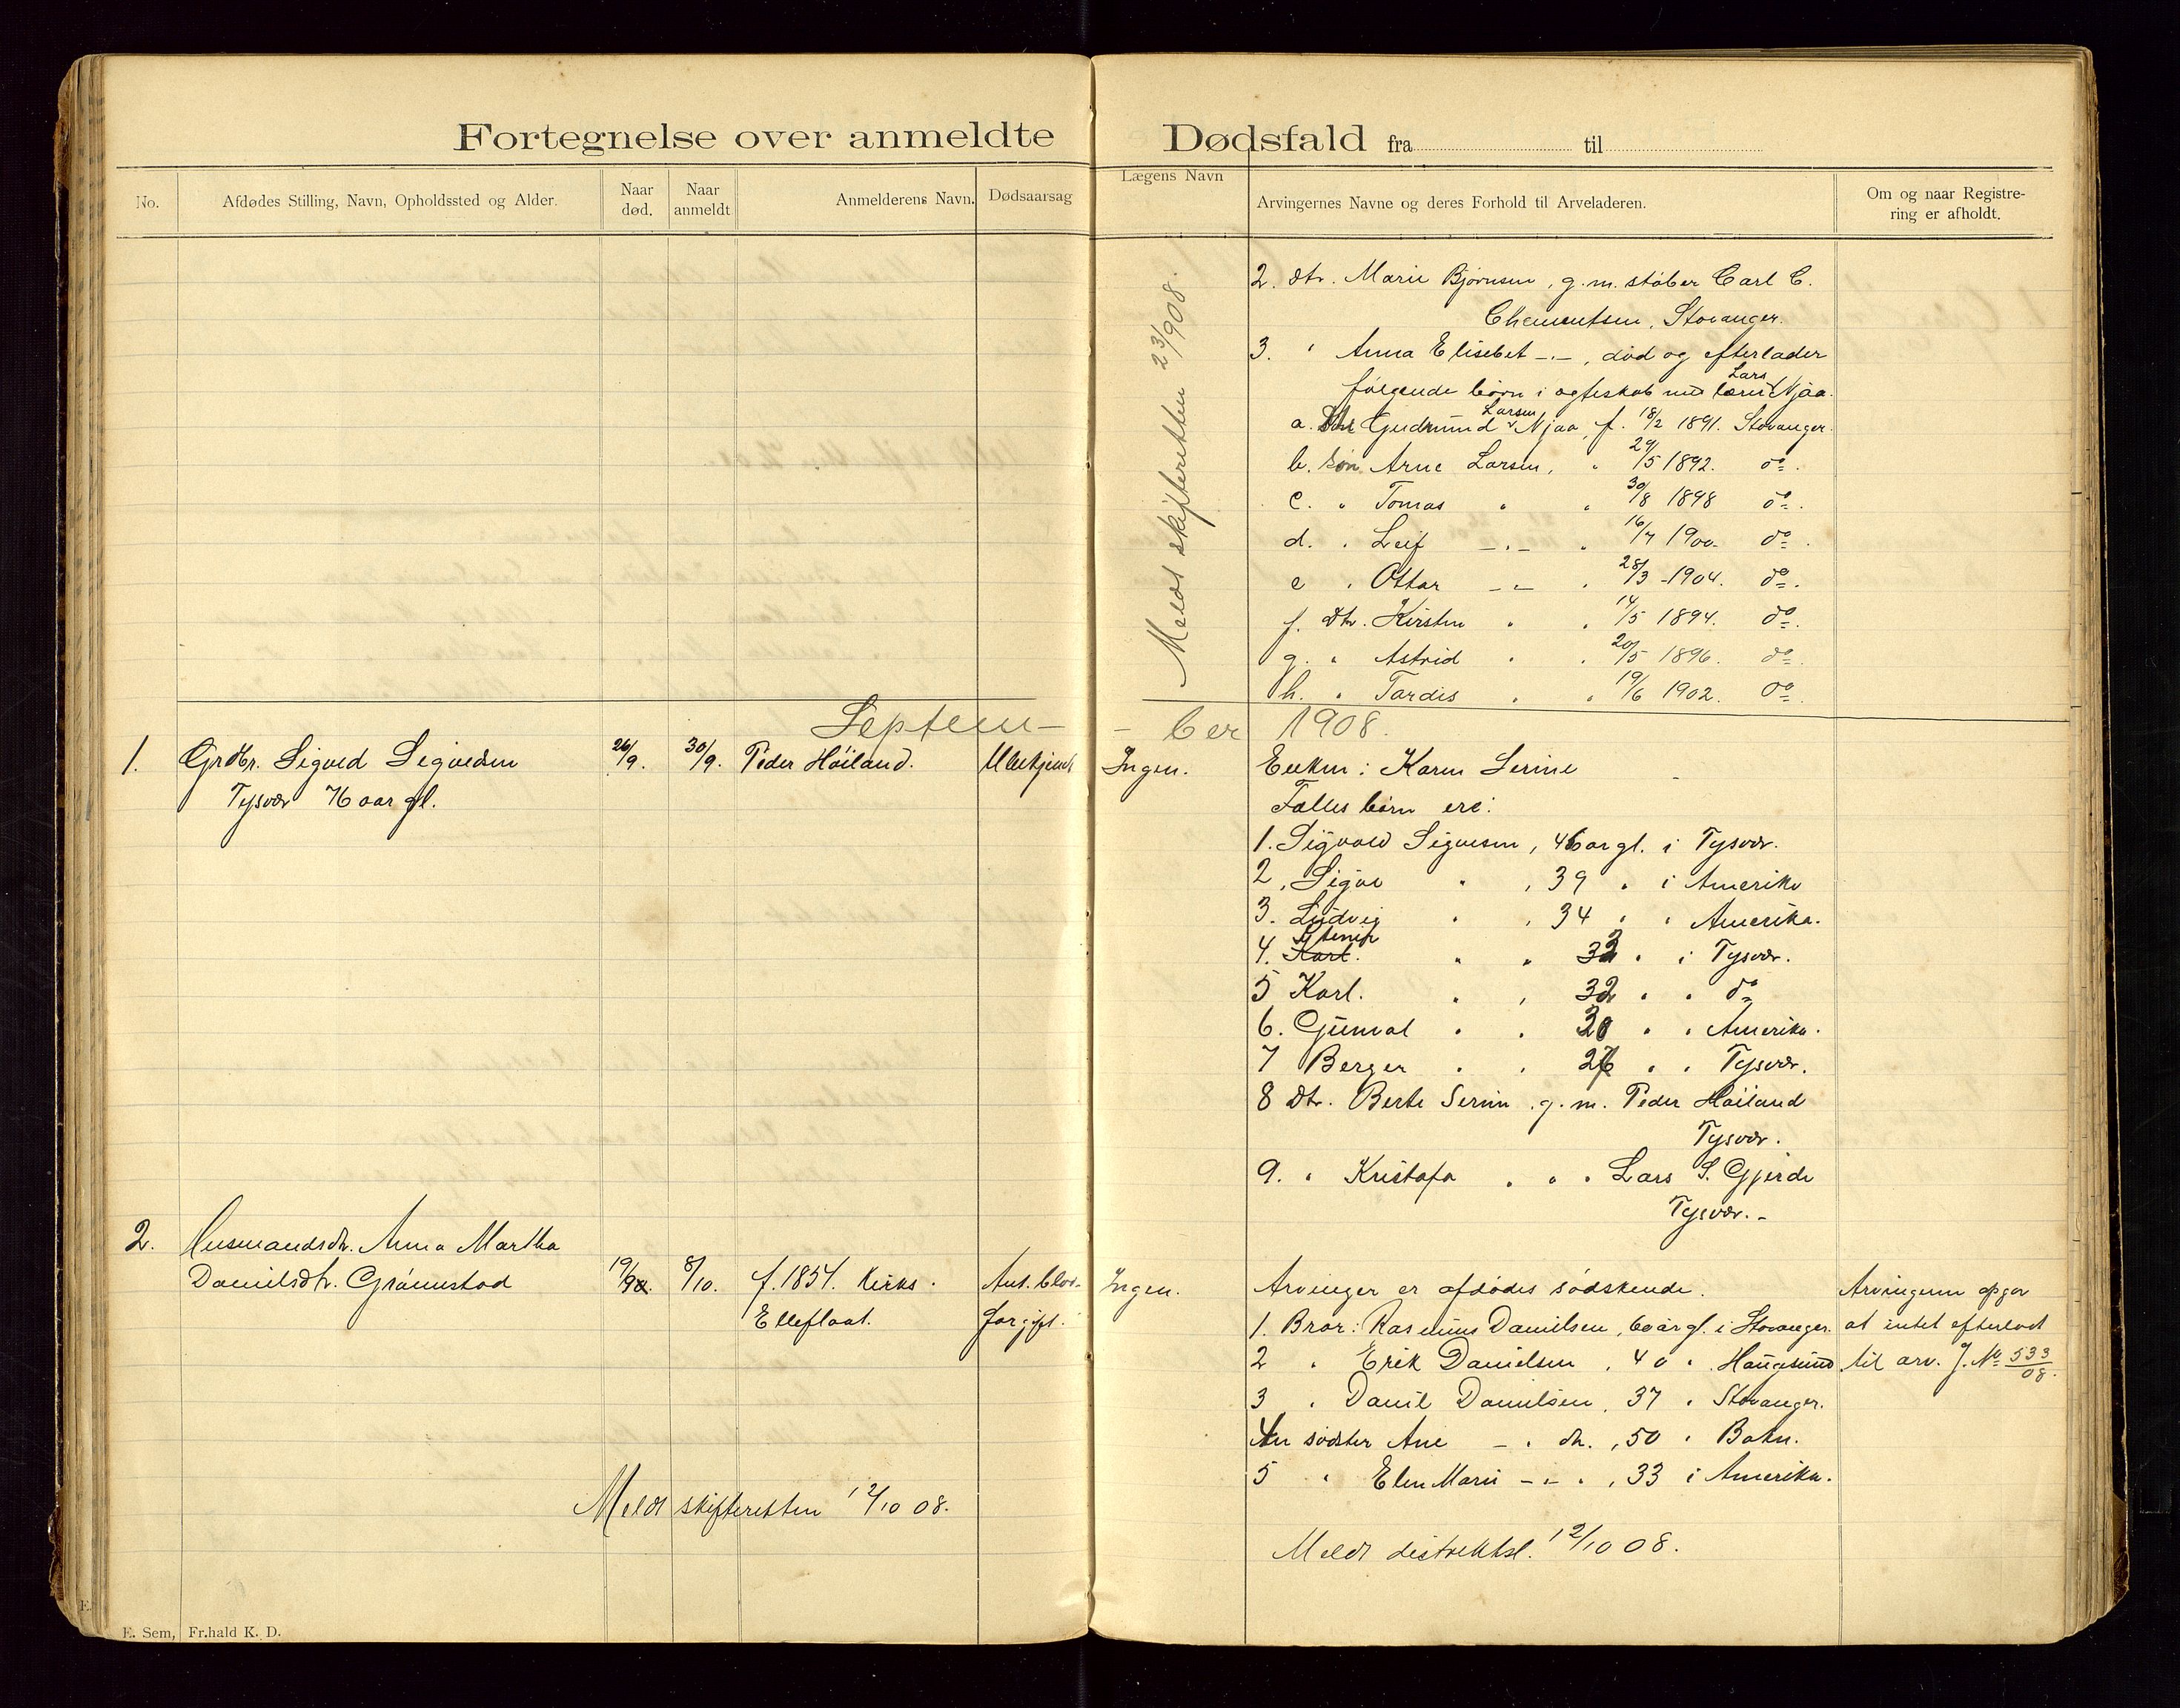 Fortegnelse over anmeldte Dødsfald fra til
No.
Afdødes Stilling, Navn, Opholdssted og Alder.
Naar død.
Naar anmeldt
Anmelderens Navn.
Dødsaarsag
Lægens Navn
Arvingernes Navne og deres Forhold til Arveladeren.
Om og naar Registre-
ring er afholdt.
Meldt skifteretten 23/908.
2. dtr. Marie Bjørnsen, g. m. støber Carl C.
Clementsen, Stavanger.
3. " Anna Elisebet -"-, død og efterlader
følgende børn i egteskab med Lars Njaa.
a. Gudmund Larsen Njaa, f. 18/2 1891. Stavanger.
b. Søn Arne Larsen, " 29/5 1892. do.
c. " Tomas " " 30/8 1898 do.
d. " Leif -"- " 16/7 1900. do.
e " Ottar -"- " 28/3 - 1904. do.
f. dtr. Kirsten " " 14/5 1894. do.
g. " Astrid " " 20/5 1896. do.
h. " Tordis " " 19/6 1902. do.
Septem-
- ber 1908.
1. Grdbr. Sigved Sigvedsen 26/9. 30/9. Peder Høiland. Ubekjendt Ingen.
Tysvær 76 aar gl.
Enken: Karen Serine
Fælles børn ere:
1. Sigvald Sigvesen, 46 aar gl. i Tysvær.
2, Sigve " , 39 " i Amerika
3. Ludvig " , 34 " " Amerika.
4. Karl. " " 33 " i Tysvær.
5 Karl. " , 32 " " do
6. Gunval " " 30 " " Amerika.
7 Berger " , 26 " " Tysvær.
8 dtr. Berte Serine g. m. Peder Høiland
Tysvær.
9. " Kristofa " " " Lars S. Gjerde
Tysvær. -
2. Husmandsdtr. Anna Martha
Danielsdtr. Grønnestad 19/9. 8/10. f. 1854. Kirks. Ant. blod- Ingen.
Elleflaat. forgift.
Arvinger er afdødes sødskende.
1. Bror: Rasmus Danielsen, 60 aar gl. i Stavanger.
2 " Erik Danielsen, 40 " Haugesund
3 " Daniel Danielsen, 37 " Stavanger.
4 sødster Ane -" dtr., 50 " Bokn.
5 " Elen Marie -"- " , 33 i Amerika.
Arvingerne opgav
at intet efterlodt
til arv. J. No 533/08.
Meldt skifteretten 12/10 08.
Meldt distriktsl. 12/10 08.
E. Sem, Fr.hald K. D.